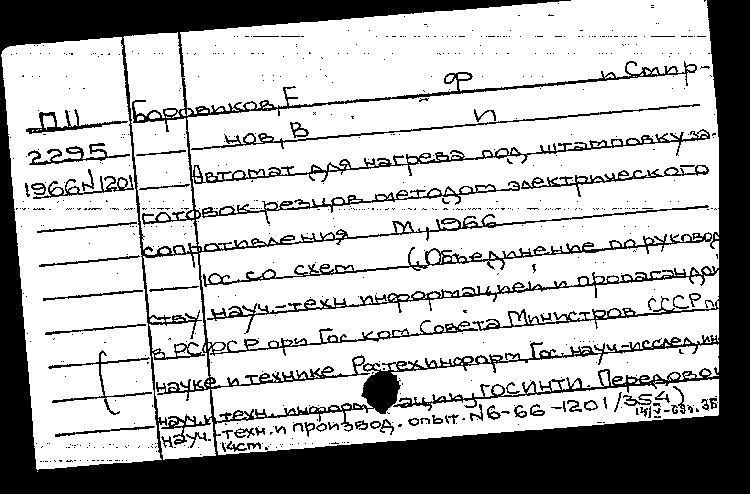 П11 Боровиков, Е Ф и Смир-
2295 нов, В И
1966 N1201 Автомат для нагрева под штамповку за-
готовок резцов методом электрического
сопротивления М., 1966
10с. со схем (Объединение по руковод
ству науч.-техн. информацией и пропагандой
в РСФСР при Гос ком Совета Министров СССР по
науке и технике. Ростехинформ. Гос. науч-исслед. ин
науч. и техн. информации, ГОСИНТИ. Передовой
науч.-техн. и производ. опыт. N6-66-1201/354)
14см.